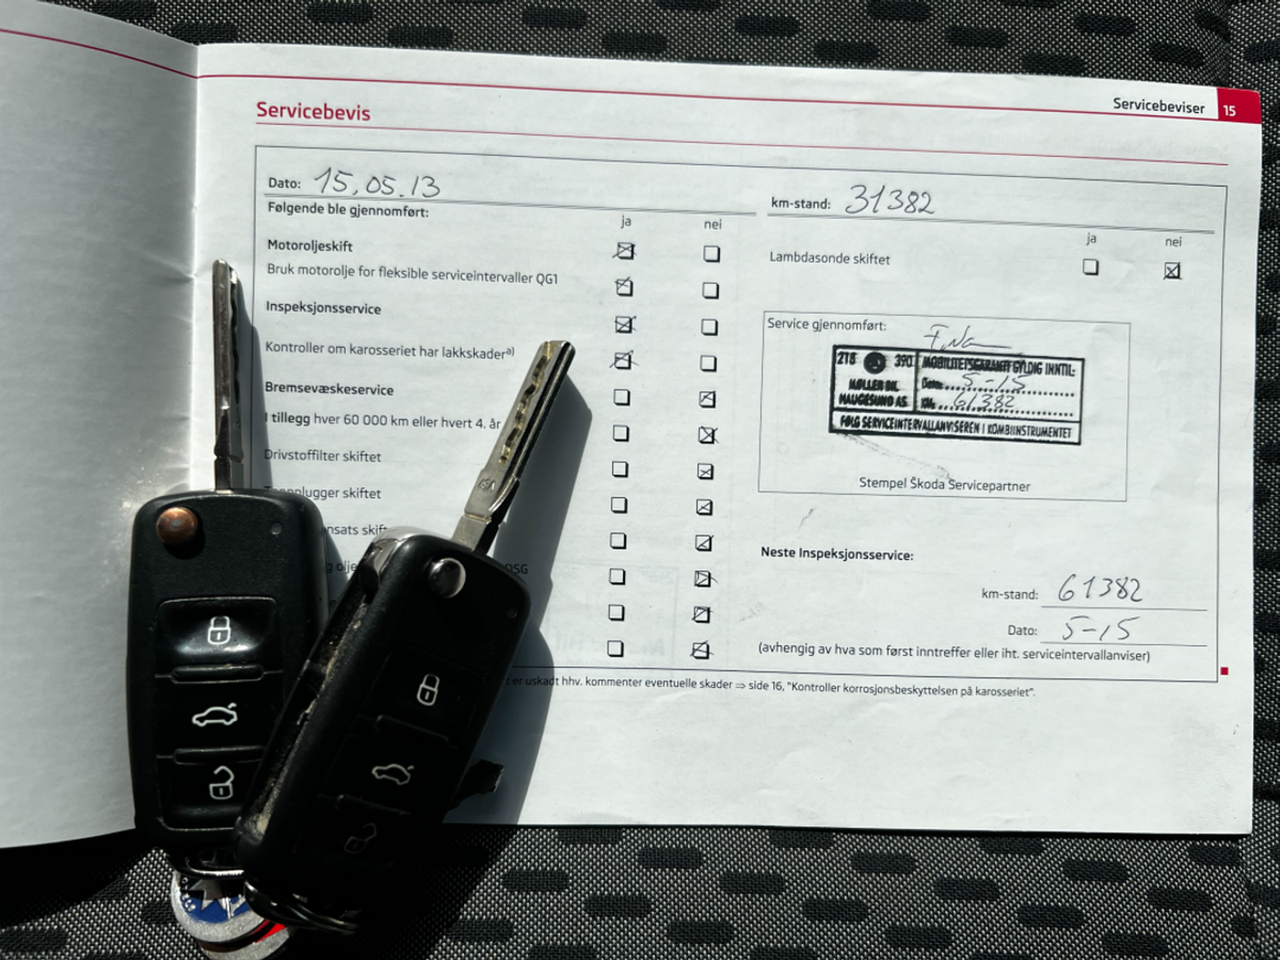 Servicebeviser 15
Servicebevis
Dato: 15.05.13
km-stand: 31382
Følgende ble gjennomført:
ja nei
ja nei
Motoroljeskift
Lambdasonde skiftet
Bruk motorolje for fleksible serviceintervaller QG1
Inspeksjonsservice
Kontroller om karosseriet har lakkskader a)
Bremsevæskeservice
I tillegg hver 60 000 km eller hvert 4. år
Drivstoffilter skiftet
skiftet
QSG
Service gjennomført:
218 390
MØLLER BIL
HAUGESUND AS
MOBILITETSGARANTI GYLDIG INNTIL:
Dato: 5-15
KM: 61382
FØLG SERVICEINTERVALLANVISEREN I KOMBIINSTRUMENTET
Stempel Škoda Servicepartner
Neste Inspeksjonsservice:
km-stand: 61382
Dato: 5-15
(avhengig av hva som først inntreffer eller iht. serviceintervallanviser)
er uskadt hhv. kommenter eventuelle skader ⇒ side 16, "Kontroller korrosjonsbeskyttelsen på karosseriet".